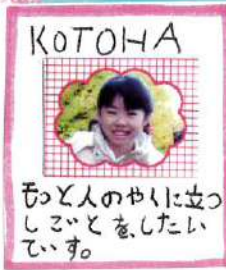 KOTOHA
もっと人のやくに立つ
しごとを、したい
でいす。